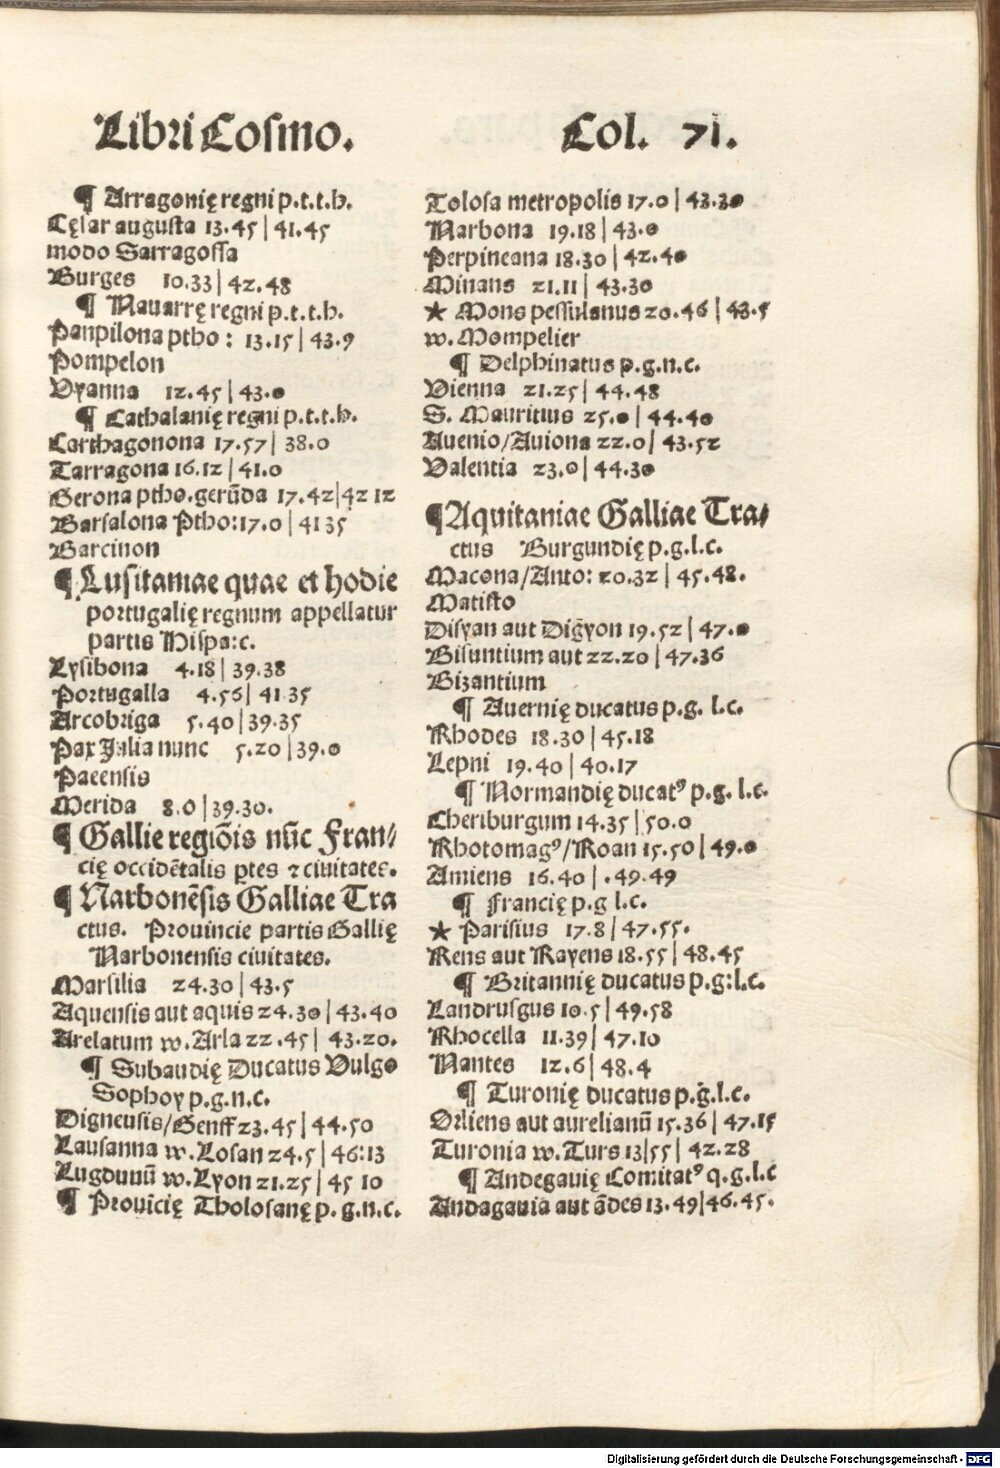 Libri Cosmo. Col. 71.
¶ Arragonię regni p.t.t.h.
Cęlar augusta 13.45 | 41.45
modo Sarragossa
Burges 10.33 | 42.48
¶ Nauarrę regni p.t.t.h.
Panpilona ptho: 13.15 | 43.9
Pompelon
Vyanna 12.45 | 43.0
¶ Cathalanię regni p.t.t.h.
Carthagonona 17.57 | 38.0
Tarragona 16.12 | 41.0
Gerona ptho.gerūda 17.42 | 42 12
Barsalona Ptho: 17.0 | 41 35
Barcinon
¶ Lusitamae quae et hodie
portugalię regnum appellatur
partis Hispa:c.
Lysibona 4.18 | 39.38
Portugalla 4.56 | 41 35
Arcobriga 5.40 | 39.35
Pax Julia nunc 5.20 | 39.0
Pacensis
Merida 8.0 | 39.30.
¶ Gallie regiōis nūc Fran/
cię occidētalis ptes ⁊ ciuitates.
¶ Narbonēsis Galliae Tra
ctus. Prouincie partis Gallię
Narbonensis ciuitates.
Marsilia 24.30 | 43.5
Aquensis aut aquis 24.30 | 43.40
Arelatum w. Arla 22.45 | 43.20.
¶ Subaudię Ducatus Vulgo
Sophoy p.g.n.c.
Digneusis/Genff 23.45 | 44.50
Lausanna w. Losan 24.5 | 46:13
Lugdunū w. Lyon 21.25 | 45 10
¶ Prouīcię Tholosanę p.g.n.c.
Tolosa metropolis 17.0 | 43.30
Narbona 19.18 | 43.0
Perpineana 18.30 | 42.40
Minans 21.11 | 43.30
★ Mons pessulanus 20.46 | 43.5
w. Mompelier
¶ Delphinatus p.g.n.c.
Vienna 21.25 | 44.48
S. Mauritius 25.0 | 44.40
Auenio/Auiona 22.0 | 43.52
Valentia 23.0 | 44.30
¶ Aquitaniae Galliae Tra/
ctus Burgundię p.g.l.c.
Macona/Anto: 20.32 | 45.48.
Matisto
Disyan aut Digyon 19.52 | 47.0
Bisuntium aut 22.20 | 47.36
Bizantium
¶ Auernię ducatus p.g. l.c.
Rhodes 18.30 | 45.18
Lepni 19.40 | 40.17
¶ Normandię ducatꝰ p.g. l.c.
Cheriburgum 14.35 | 50.0
Rhotomagꝰ/Roan 15.50 | 49.0
Amiens 16.40 | .49.49
¶ Francię p.g l.c.
★ Parisius 17.8 | 47.55.
Rens aut Rayens 18.55 | 48.45
¶ Britannię ducatus p.g:l.c.
Landrusgus 10.5 | 49.58
Rhocella 11.39 | 47.10
Nantes 12.6 | 48.4
¶ Turonię ducatus p.g.l.c.
Orliens aut aurelianū 15.36 | 47.15
Turonia w. Turs 13 | 55 | 42.28
¶ Andegauię Comitatꝰ q.g.l.c
Andagauia aut ādes 13.49 | 46.45.
Digitalisierung gefördert durch die Deutsche Forschungsgemeinschaft - DFG